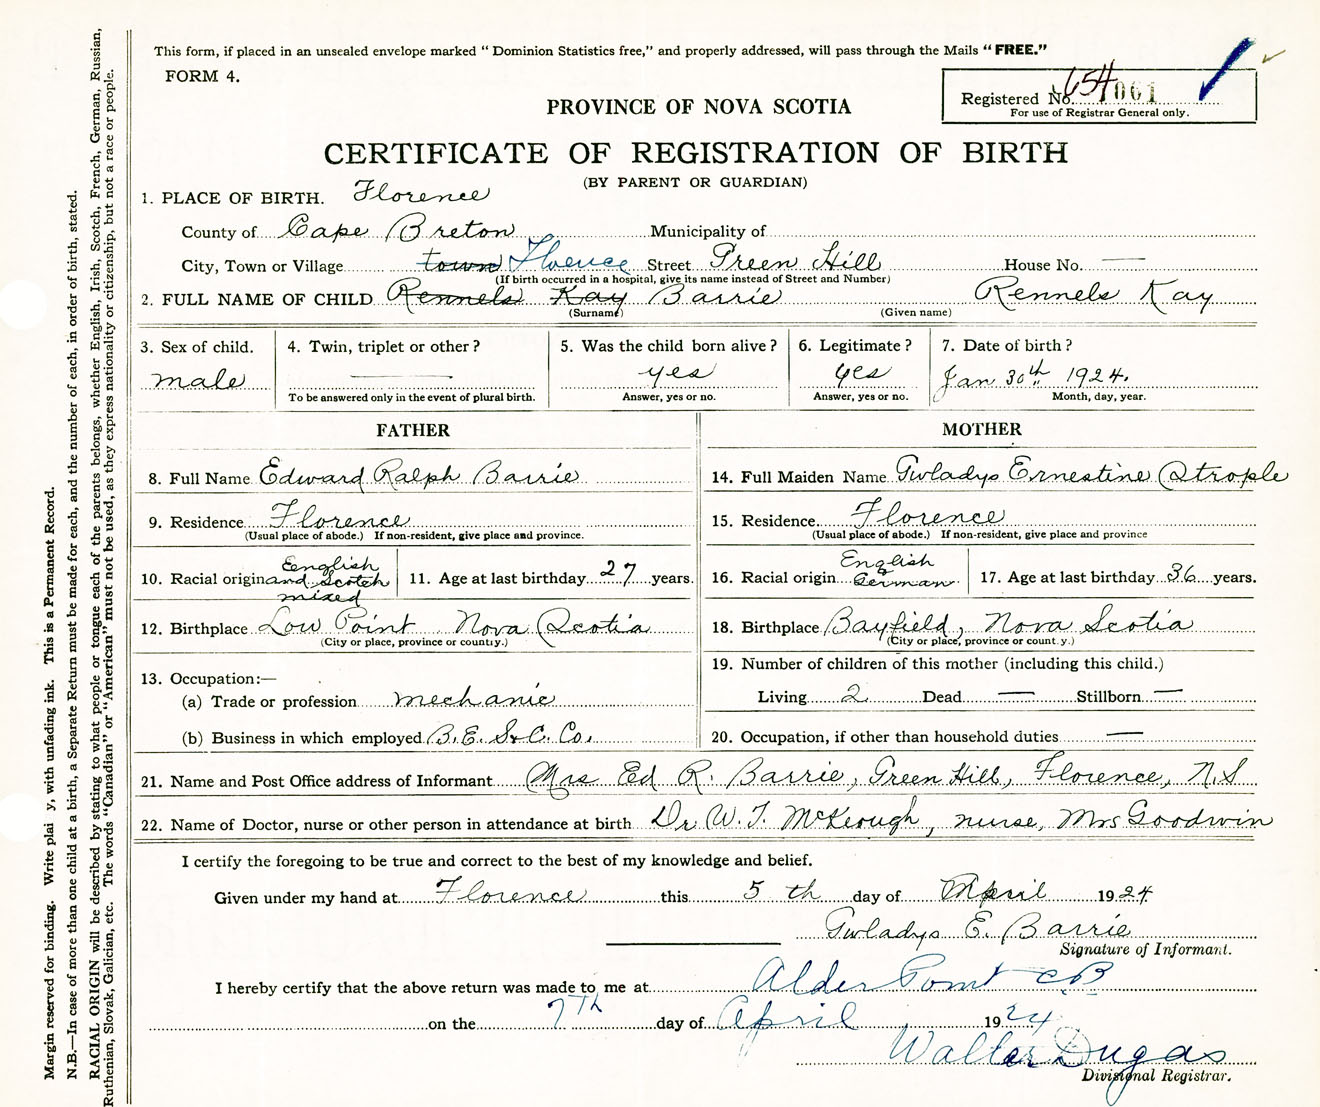 This form, if placed in an unsealed envelope marked " Dominion Statistics free," and properly addressed, will pass through the Mails " FREE."
FORM 4.
Registered No. 654 1061
For use of Registrar General only.
PROVINCE OF NOVA SCOTIA
CERTIFICATE OF REGISTRATION OF BIRTH
(BY PARENT OR GUARDIAN)
1. PLACE OF BIRTH. Florence
County of Cape Breton Municipality of
City, Town or Village town Florence Street Green Hill House No. —
(If birth occurred in a hospital, give its name instead of Street and Number)
2. FULL NAME OF CHILD Rennels Kay Barrie Rennels Kay
(Surname) (Given name)
3. Sex of child. 4. Twin, triplet or other ? 5. Was the child born alive ? 6. Legitimate ? 7. Date of birth ?
male — yes yes Jan 30th 1924.
To be answered only in the event of plural birth. Answer, yes or no. Answer, yes or no. Month, day, year.
FATHER
8. Full Name Edward Ralph Barrie
9. Residence Florence
(Usual place of abode.) If non-resident, give place and province.
10. Racial origin English and Scotch mixed 11. Age at last birthday 27 years.
12. Birthplace Low Point, Nova Scotia
(City or place, province or country.)
13. Occupation:—
(a) Trade or profession mechanic
(b) Business in which employed B.E. S. & C. Co.
MOTHER
14. Full Maiden Name Gwladys Ernestine Strople
15. Residence Florence
(Usual place of abode.) If non-resident, give place and province
16. Racial origin English German 17. Age at last birthday 36 years.
18. Birthplace Bayfield, Nova Scotia
(City or place, province or count.y.)
19. Number of children of this mother (including this child.)
Living 2 Dead — Stillborn —
20. Occupation, if other than household duties —
21. Name and Post Office address of Informant Mrs Ed R. Barrie, Green Hill, Florence, N.S
22. Name of Doctor, nurse or other person in attendance at birth Dr W. T. McKeough, nurse, Mrs Goodwin
I certify the foregoing to be true and correct to the best of my knowledge and belief.
Given under my hand at Florence this 5 th day of April 1924.
Gwladys E. Barrie
Signature of Informant.
I hereby certify that the above return was made to me at Alder Point CB
on the 7TH day of April 1924
Walter Dugas
Divisional Registrar.
Margin reserved for binding. Write plai y, with unfading ink. This is a Permanent Record.
N.B.—In case of more than one child at a birth, a Separate Return must be made for each, and the number of each, in order of birth, stated.
RACIAL ORIGIN will be described by stating to what people or tongue each of the parents belongs, whether English, Irish, Scotch, French, German, Russian,
Ruthenian, Slovak, Galician, etc. The words "Canadian" or "American" must not be used, as they express nationality or citizenship, but not a race or people.